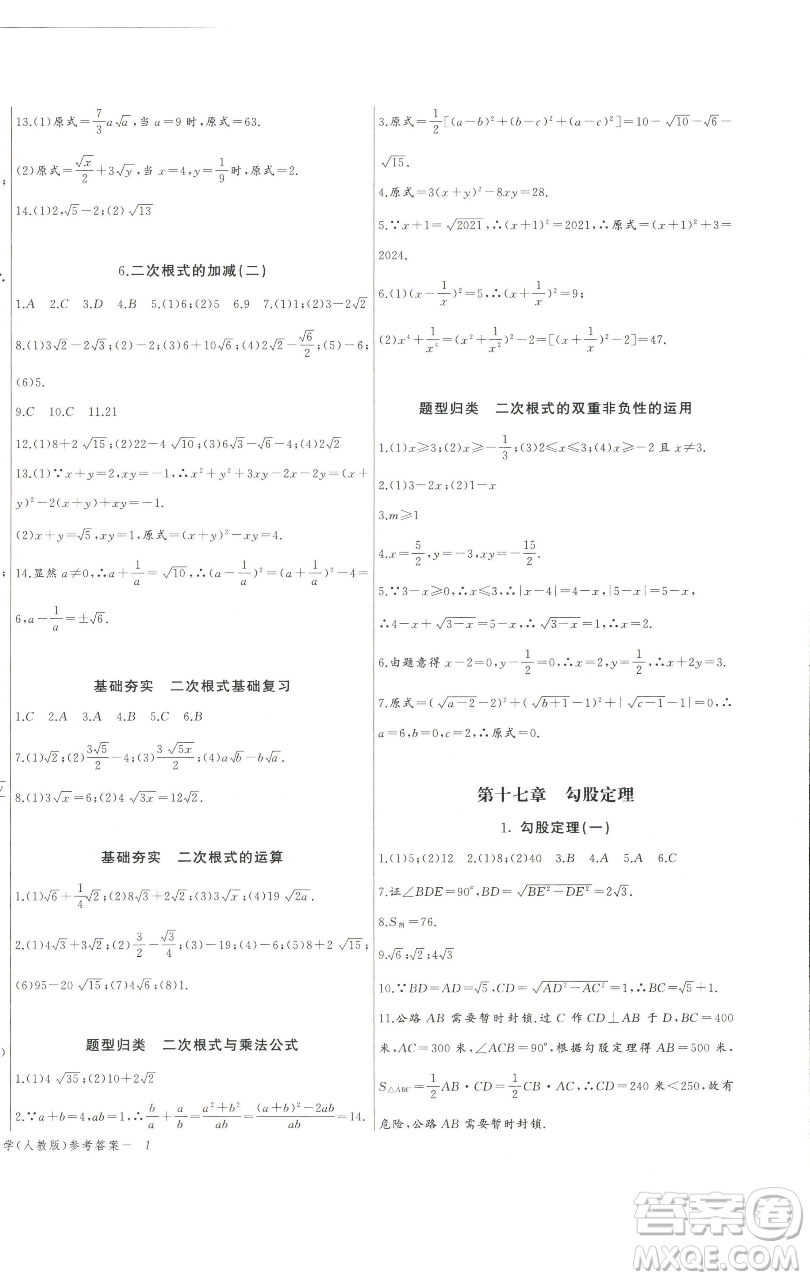 13.(1)原式=7/3 a√a,当 a=9 时,原式=63.
(2)原式=√x/2+3√y,当 x=4,y=1/9时,原式=2.
14.(1)2,√5-2;(2)√13
6.二次根式的加减(二)
1.A 2.C 3.D 4.B 5.(1)6;(2)5 6.9 7.(1)1;(2)3-2√2
8.(1)3√2-2√3;(2)-2;(3)6+10√6;(4)2√2-√6/2;(5)-6;
(6)5.
9.C 10.C 11.21
12.(1)8+2√15;(2)22-4√10;(3)-9+2√3;(4)√6.
13.(1)∵x+y=2,xy=-1,∴x²+y²+3xy-2x-2y=(x+
y)²-2(x+y)+xy=-1.
(2)x+y=√5,xy=1,原式=(x+y)²-xy=4.
14.显然 a≠0,∴a+1/a=√10,∴(a-1/a)²=(a+1/a)²-4=
6,a-1/a=±√6.
基础夯实 二次根式基础复习
1.C 2.A 3.A 4.B 5.C 6.B
7.(1)√2;(2)3√5/2;(3)3√5x/2;(4)a√b-b√a.
8.(1)3√x=6;(2)4√3x=12√2.
基础夯实 二次根式的运算
1.(1)√6+1/4√2;(2)8√3+2√2;(3)3√x;(4)19√2a.
2.(1)4√3+3√2;(2)3/2-√3/4;(3)-19;(4)-6;(5)8+2√15;
(6)95-20√15;(7)4√6;(8)1.
题型归类 二次根式与乘法公式
1.(1)4√35;(2)10+2√2
2.∵a+b=4,ab=1,∴b/a+a/b=(a²+b²)/ab=((a+b)²-2ab)/ab=14.
学(人教版)参考答案— 1
3.原式=1/2[(a-b)²+(b-c)²+(a-c)²]=10-√10-√6-
√15.
4.原式=3(x+y)²-8xy=28.
5.∵x+1=√2021,∴(x+1)²=2021,∴原式=(x+1)²+3=
2024.
6.(1)(x-1/x)²=5,∴(x+1/x)²=9;
(2)x⁴+1/x⁴=(x²+1/x²)²-2=[(x+1/x)²-2]²-2=47.
题型归类 二次根式的双重非负性的运用
1.(1)x≥3;(2)x≥-1/3;(3)2≤x≤3;(4)x≥-2 且 x≠3.
2.(1)3-2x;(2)1-x
3.m≥1
4.x=5/2,y=-3,xy=-15/2.
5.∵3-x≥0,∴x≤3,∴|x-4|=4-x,∴|x-4|+√3-x=5-x,
∴4-x+√3-x=5-x,∴√3-x=1,∴x=2.
6.由题意得 x-2=0,y-1/2=0,∴x=2,y=1/2,∴x+2y=3.
7.原式=(√a-2-2)²+(√b+1-1)²+|√c-1-1|=0,∴
a=6,b=0,c=2,∴原式=0.
第十七章 勾股定理
1. 勾股定理(一)
1.(1)5;(2)12 2.(1)8;(2)40 3.B 4.A 5.A 6.C
7.证∠BDE=90°,BD=√BE²-DE²=2√3.
8.S阴=76.
9.√6;√2;√3
10.∵BD=AD=√5,CD=√AD²-AC²=1,∴BC=√5+1.
11.公路 AB 需要暂时封锁.过 C 作 CD⊥AB 于 D,BC=400
米,AC=300 米,∠ACB=90°,根据勾股定理得 AB=500 米,
S△ABC=1/2AB·CD=1/2CB·AC,∴CD=240 米<250,故有
危险,公路 AB 需要暂时封锁.
答案卷
MXQE.COM